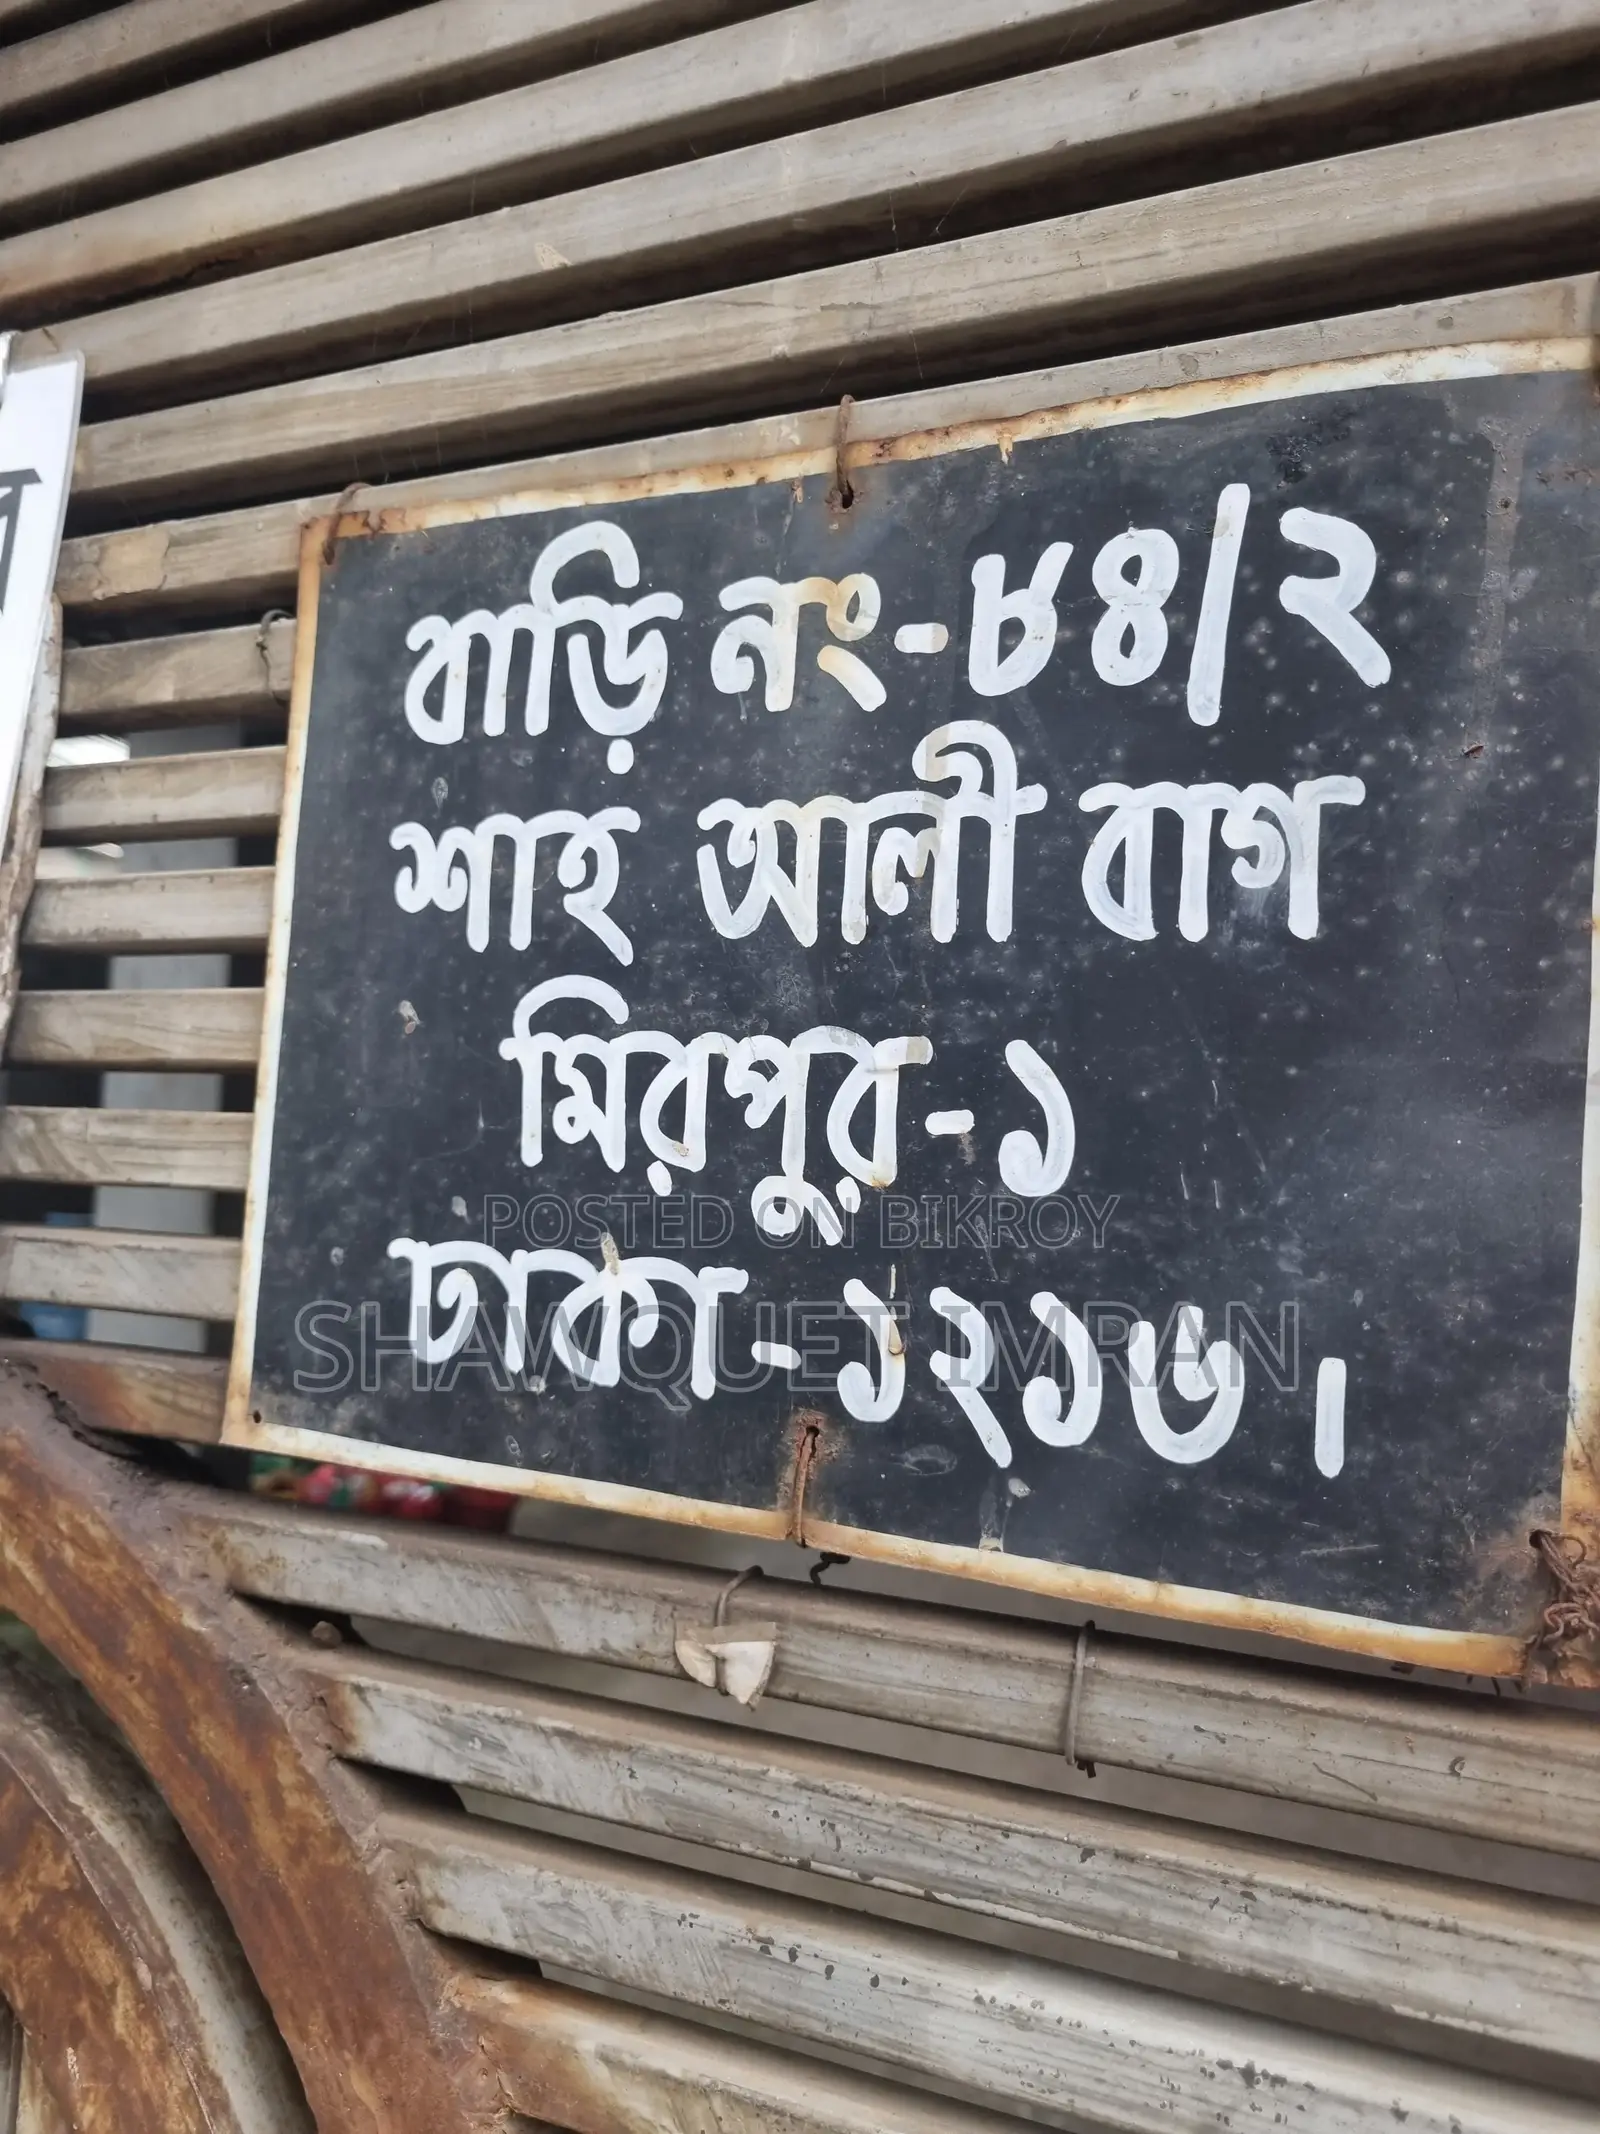 বাড়ি নং-৮৪/২
শাহ আলী বাগ
মিরপুর-১
POSTED ON BIKROY
ঢাকা-১২১৬।
SHAWQUET IMRAN